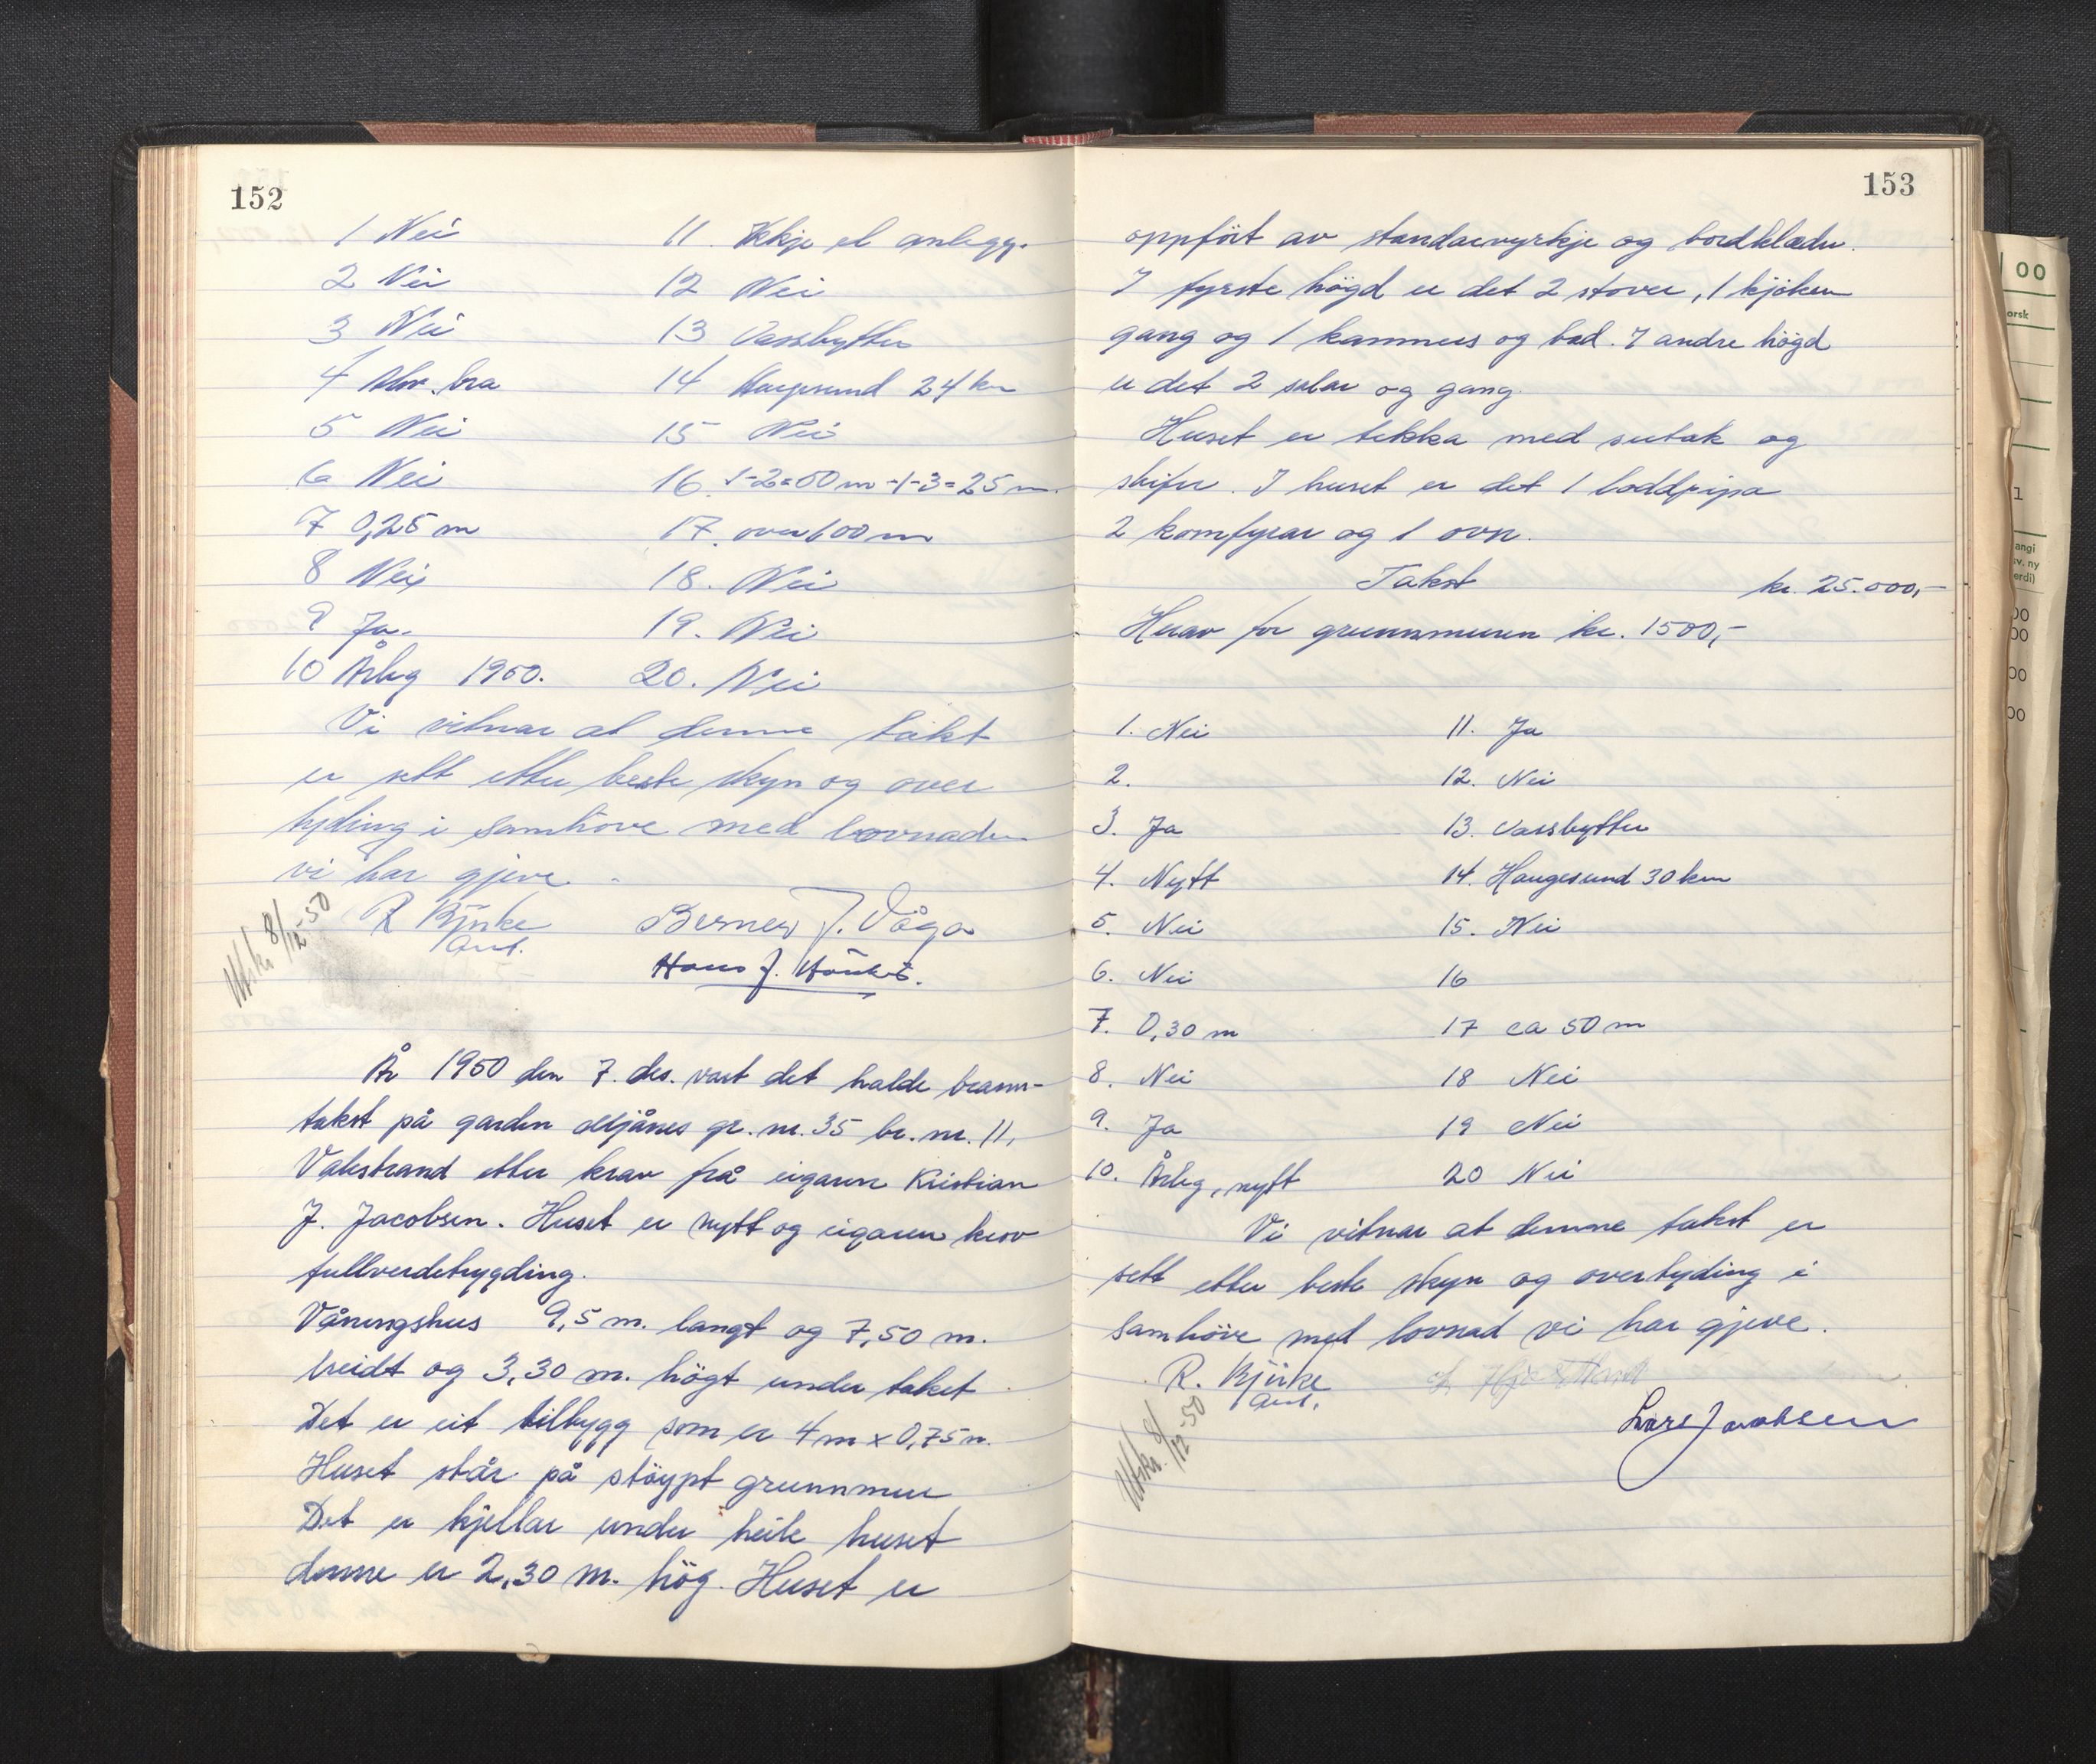 152
1 Nei
2 Nei
3 Nei
4 Alm. bra
5 Nei
6 Nei
7 0,25 m
8 Nei
9 Ja.
10 Årleg 1950.
11. Ikkje el anlegg.
12 Nei
13 Vassbytter
14 Haugesund 24 km
15 Nei
16. 1-2=50 m -1-3=25 m.
17. over 100 m
18. Nei
19. Nei
20. Nei
Vi vitnar at denne takt
er sett etter beste skyn og over
tyding i samhöve med lovnaden
vi har gjeve.
R Bjirke
Berner J. Våga
Hans J.
Utskr 8/12-50
År 1950 den 7. des. vart det halde brann-
takst på garden gr. nr. 35 br. nr. 11,
Valestrand etter krav frå eigaren Kristian
J. Jacobsen. Huset er nytt og eigaren krev
fullverdetrygding.
Våningshus 9,5 m. langt og 7,50 m.
breidt og 3,30 m. högt under taket
Det er eit tilbygg som er 4 m x 0,75 m.
Huset står på stöypt grunnmur
Det er kjellar under heile huset
denne er 2,30 m. hög. Huset er
153
oppfört av standarvyrkje og bordklædu.
I fyrste högd er det 2 stover, 1 kjöken
gang og 1 kammers og bad. I andre högd
er det 2 salar og gang.
Huset er tekka med sutak og
skifer. I huset er det 1 loddpipa
2 komfyrar og 1 ovn.
Takst kr. 25.000,-
Herav for grunnmuren kr. 1500,-
1. Nei
2.
3. Ja
4. Nytt
5. Nei
6. Nei
7. 0,30 m
8. Nei
9. Ja
10. Årleg, nytt
11. Ja
12. Nei
13. Vassbytter
14. Haugesund 30 km
15. Nei
16
17 ca 50 m
18 Nei
19 Nei
20 Nei
Vi vitnar at denne takst er
sett etter beste skyn og overtyding i
samhöve med lovnad vi har gjeve.
R. Bjirke
Lars Jacobsen
Utskr. 8/12-50
00
orsk
1
angi
sv. ny
erdi)
00
00
00
00